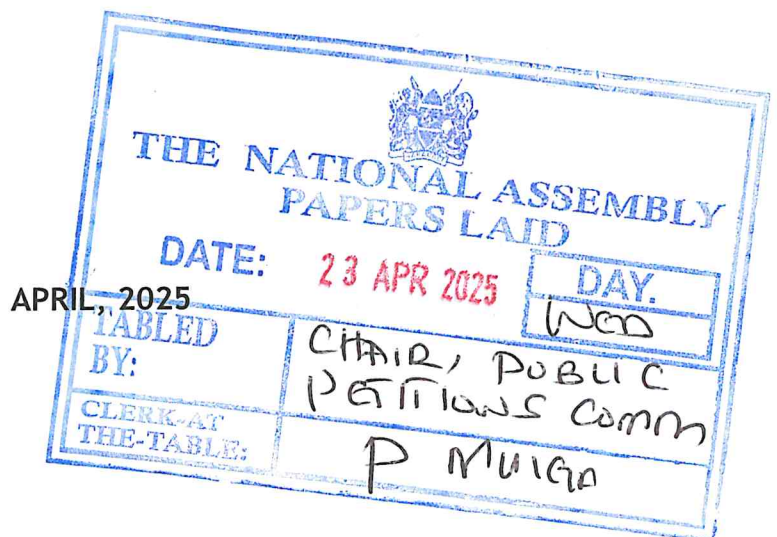 THE NATIONAL ASSEMBLY
PAPERS LAID
DATE: 23 APR 2025
DAY.
WED
APRIL, 2025
TABLED BY:
CHAIR, PUBLIC
PETITIONS COMM
CLERK-AT
THE-TABLE:
P MUIGA